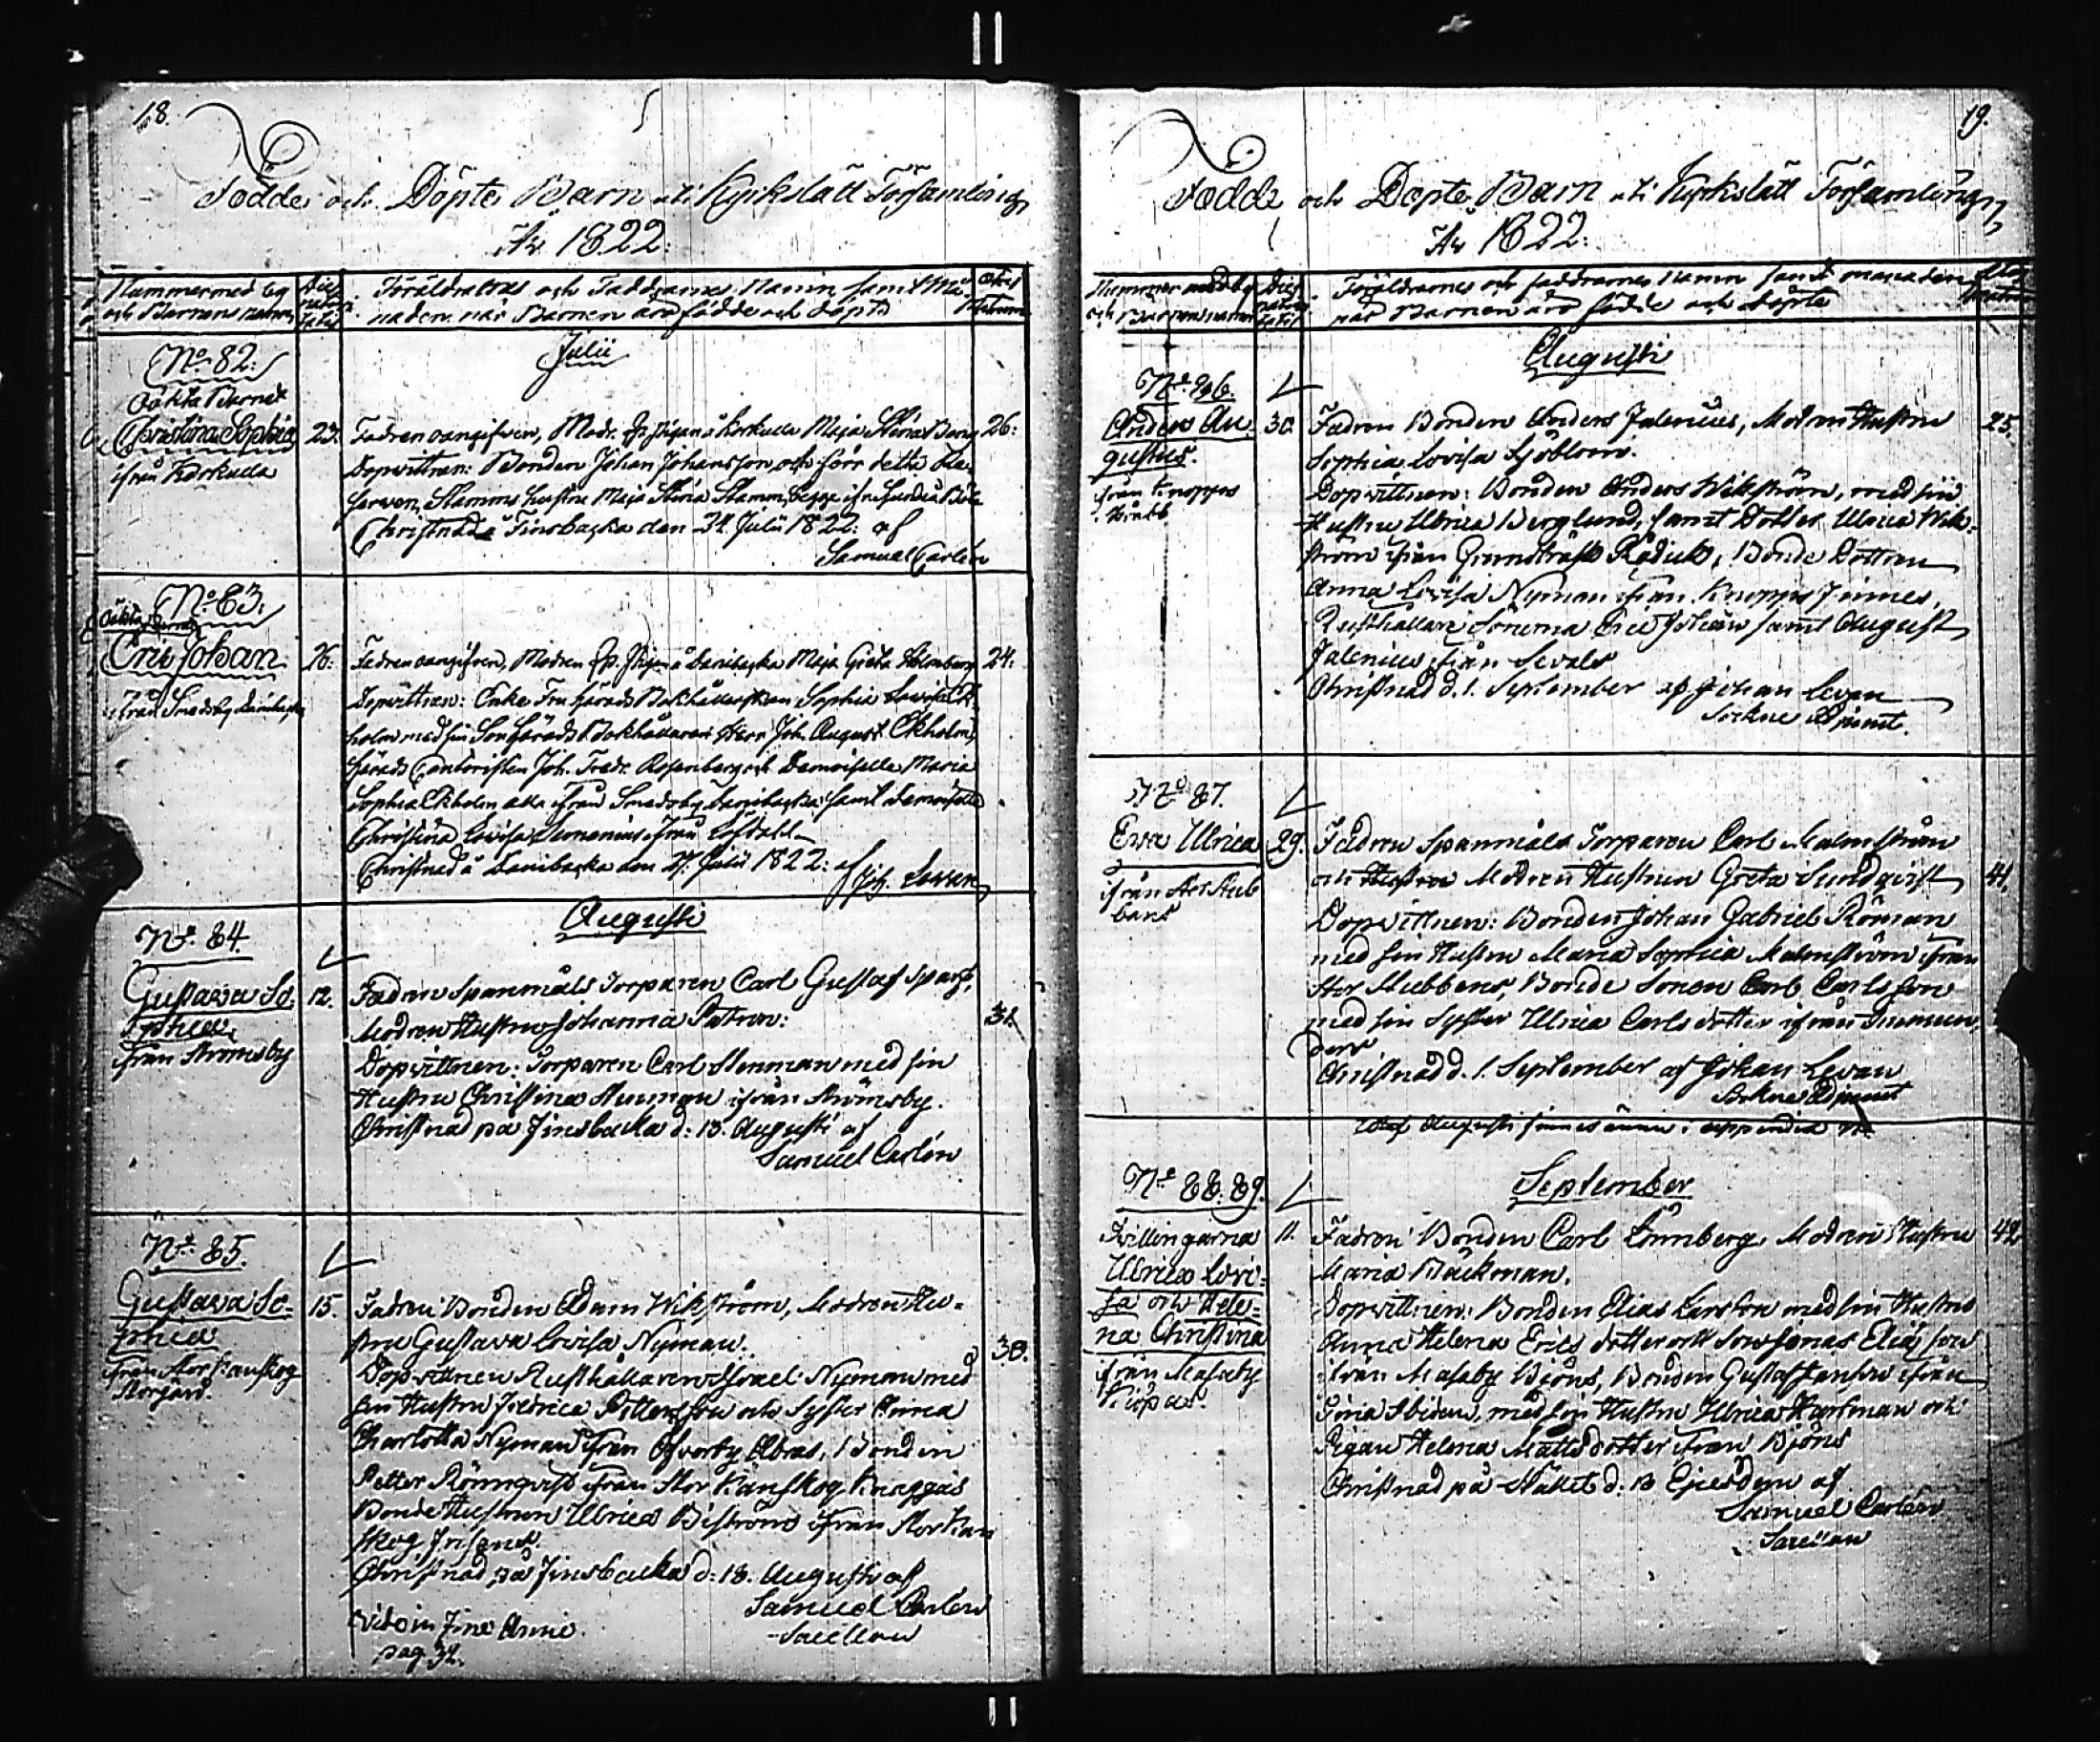 18.
Födde och Döpte Barn uti Kyrkslätt Församling
År 1822:
Nummer med
och Barnens namn
Föräldrarnas och Faddrarnes Namn samt Må-
naden när Barnen äro födde och döpte
Julii
No. 82:
Oäkta Barnet
Christina Sophia
ifrån Korkulla
23.
Fadren oangifven, Modr. Pigan å Korkulla Maja Stina Berg
26:
Dopvittnen: Bonden Johan Johansson och förr detta
Stamms hustru Maja Stina Stamm, begge ifr.
Christnad å Finsbacka den 24. Julii 1822: af
Samuel Carlén
No. 83.
Oäkta
Eric Johan
ifrån Smedsby Danibacka
26.
Fadren oangifven, Modren Pigan å Danibacka Maja Greta Holmberg
24:
Dopvittnen: Enke Fru Härads Bokhållerskan Sophia Lovisa Ek-
holm med sin Son Härads Bokhållaren Herr Joh. August Ekholm,
Härads Cantoristen Joh. Fredr. Rosenberg och Demoiselle Maria
Sophia Ekholm alla ifrån Smedsby Danibacka samt demoiselle
Christina Lovisa ifrån
Christnad å Danibacka den 27. Julii 1822: af Joh. Levan
Augusti
No. 84.
Gustava So-
phia
ifrån Strömsby
12.
Fadren Spanmåls Torparen Carl Gustaf
Modren Hustru Johanna Patron:
31.
Dopvittnen: Torparen Carl Stenman med sin
Hustru Christina Stenman ifrån Strömsby.
Christnad på Finsbacka d: 18. Augusti af
Samuel Carlén
No. 85.
Gustava So-
phia
ifrån Stor Kanskog
Storgård.
15.
Fadren Bonden Adam Wikström, Modren Hu-
stru Gustava Lovisa Nyman.
30.
Dopvittnen Rusthållaren Israel Nyman med
sin Hustru Fredrica Pettersson och Syster Anna
Charlotta Nyman ifrån Öfverby Abras, Bonden
Petter Rönnqvist ifrån Stor Kanskog Knaggas
Bonde Hustrun Ulrica Biström ifrån Stor Kan
skog
Christnad på Finsbacka d: 18. Augusti af
Samuel Carlén
vide in fine Anni
pag. 32.
19.
Födde och Döpte Barn uti Kyrkslätt Församling
År 1822:
Nummer med
och Barnens namn
Föräldrarnes och faddrarnes Namn samt månaden
när Barnen äro födde och döpte
Augusti
No. 86.
Anders Au-
gustus.
ifrån Knopps
30
Fadren Bonden Anders Jalenius, Modren Hustru
25.
Sophia Lovisa Sjöblom.
Dopvittnen: Bonden Anders Wikström, med sin
Hustru Ulrica Berglund, samt Dotter Ulrica Wik-
ström ifrån Grundträsk Rådick, Bonde Dottren
Anna Lovisa Nyman ifrån Knopps Finnes,
Rusthållare Sönerna Eric Johan samt August
Jalenius ifrån Sevals
Christnad d. 1. September af Johan Levan
Sockne Adjunct.
No. 87.
Eva Ulrica
ifrån Stor Stub
bans
29.
Fadren Spanmåls Torparen Carl Malmström
och Hustru Modren Hustrun Greta Sundqvist
41.
Dopvittnen: Bonden Johan Gabriel Röman
med sin Hustru Maria Sophia Malmström ifrån
Stor Stubbens, Bonde Sonen Carl Carlsson
med sin Syster Ulrica Carlsdotter ifrån
Christnad d. 1. September af Johan Levan
Sockne Adjunct
Augusti finnes ännu i appendix
September
No. 88. 89.
Tvillingarna
Ulrica Lovi-
sa och Hele-
na Christina
ifrån Masaby
11.
Fadren Bonden Carl Lönnberg, Modren Hustru
42
Maria Bäckman.
Dopvittnen: Bonden Elias Larsson med sin Hustru
Anna Helena Ericsdotter och Son Jonas Eliæson
ifrån Masaby Björns, Bonden Gustaf Jansson ifrån
med sin Hustru Ulrica Hartman och
Pigan Helena Mattsdotter ifrån Björns
Christnad på d: 13 Ejusdem af
Samuel Carlén